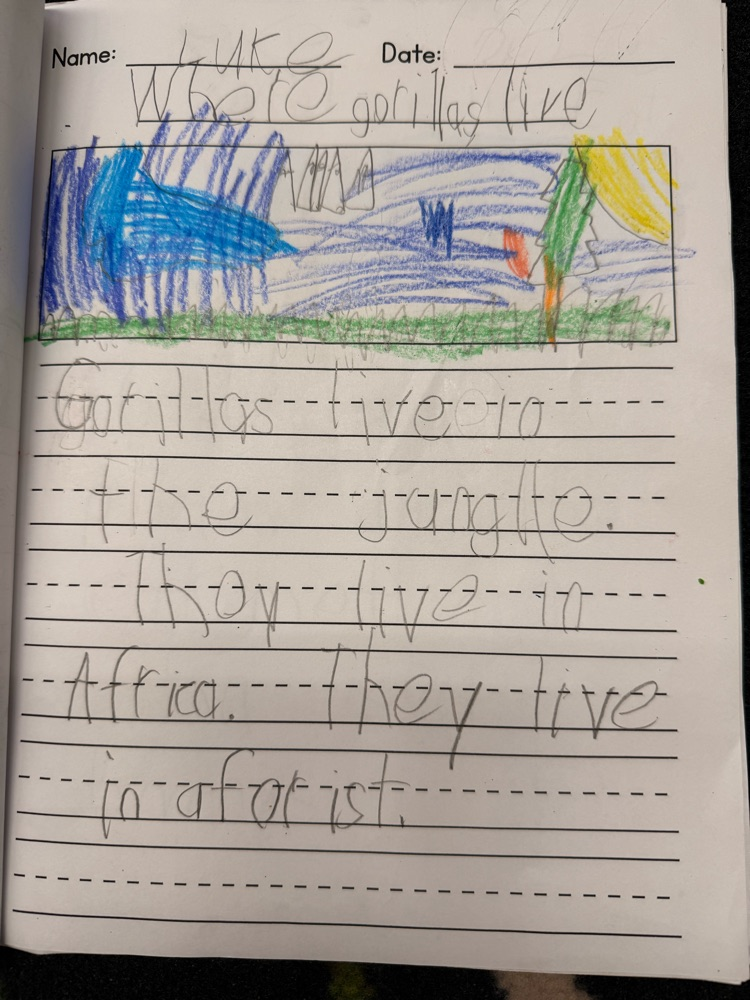 Name: Luke Date:
Where gorillas live
Gorillas live in
the junglle.
Thoy live in
Africa. They live
in a forist.